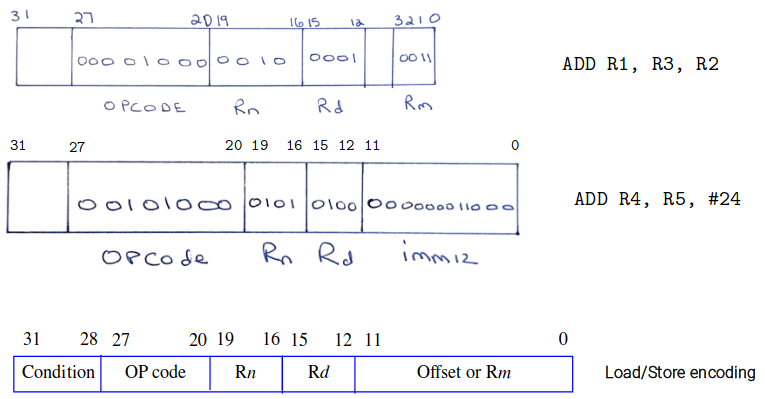 31 27 20 19 16 15 12 3 2 1 0
000 01000 0010 0001 0011 ADD R1, R3, R2
OPCODE Rn Rd Rm
31 27 20 19 16 15 12 11 0
00101000 0101 0100 000000011000 ADD R4, R5, #24
OPCode Rn Rd imm12
31 28 27 20 19 16 15 12 11 0
Condition OP code Rn Rd Offset or Rm Load/Store encoding